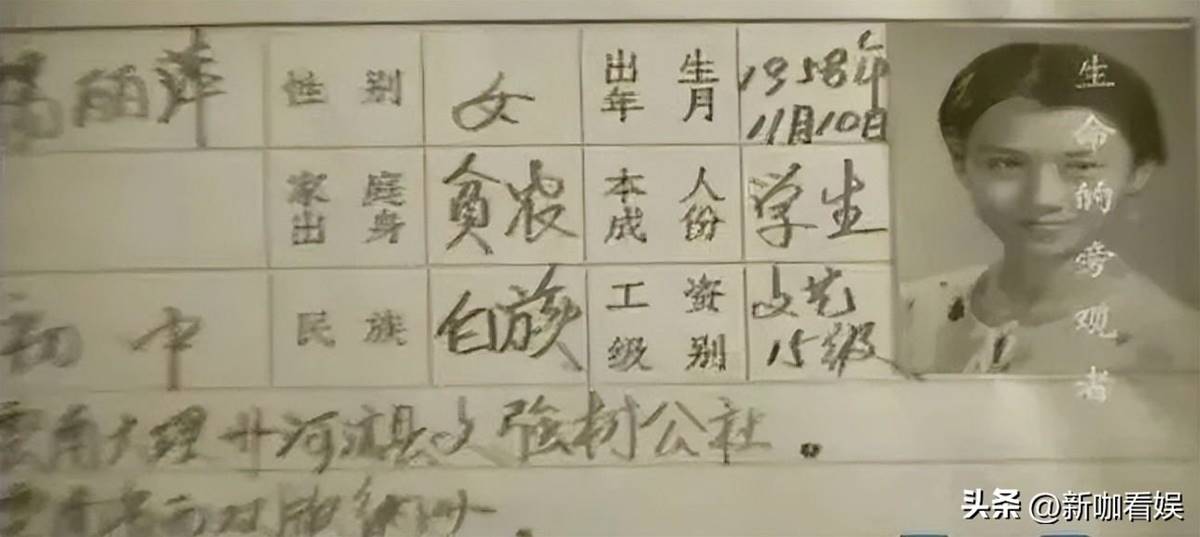 丽萍 性别 女 出生年月 1958年11月10日
家庭出身 贫农 本人成份 学生
初中 民族 白族 工资级别 文艺15级
云南大理 公社.
生命的旁观者
头条 @新咖看娱